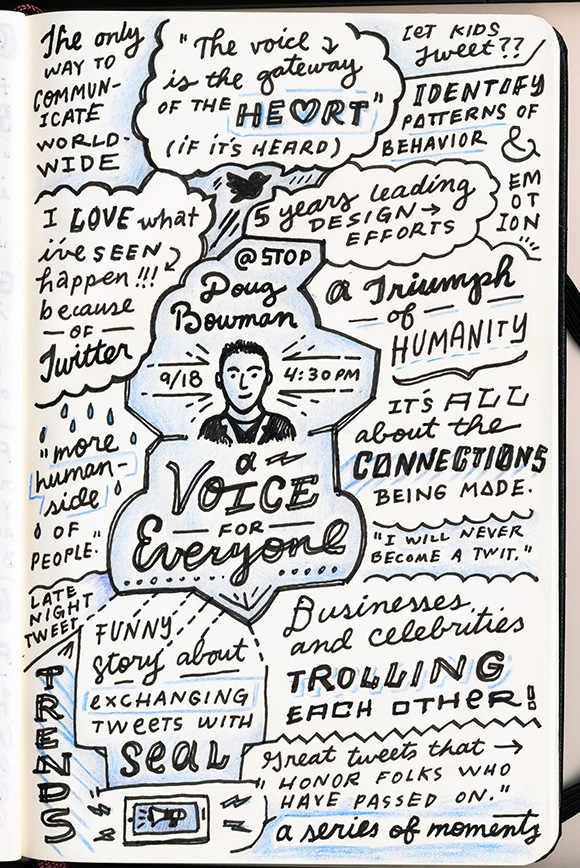 The only
WAY TO
COMMUN-
ICATE
WORLD-
WIDE
"The voice
is the gateway
OF THE HEART"
(IF IT'S HEARD)
LET KIDS
Tweet??
IDENTIFY
PATTERNS OF
BEHAVIOR &
EM
OT
ION
I LOVE what
i've SEEN
happen!!!
because
OF
Twitter
5 years leading
DESIGN →
EFFORTS
@STOP
Doug
Bowman
9/18 4:30PM
a
VOICE
FOR
Everyone
a Triumph
of
HUMANITY
IT'S ALL
about the
CONNECTIONS
BEING MADE.
"more
human-
side
OF
PEOPLE."
"I WILL NEVER
BECOME A TWIT."
LATE
NIGHT
TWEET
TRENDS
FUNNY
Story about
EXCHANGING
TWEETS WITH
SEAL
Businesses
and celebrities
TROLLING
EACH OTHER!
Great tweets that →
"HONOR FOLKS WHO
HAVE PASSED ON."
a series of moments